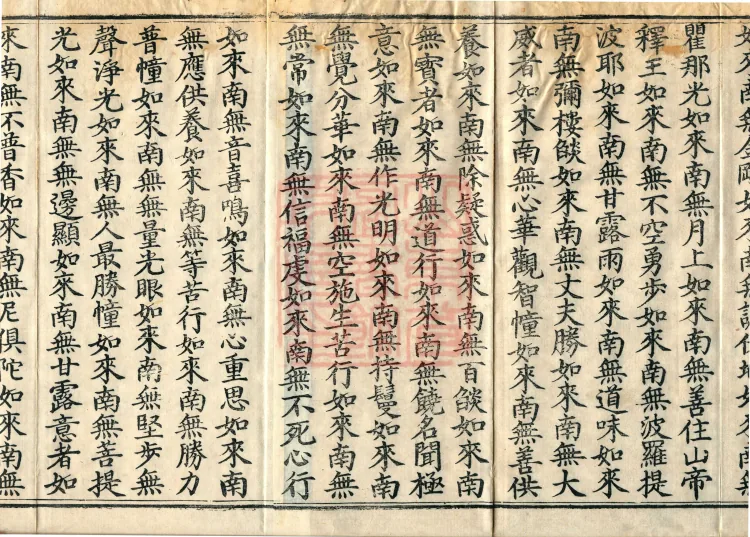 如來南無金剛如來南無住地如來南無
瞿那光如來南無月上如來南無善住山帝
釋王如來南無不空勇步如來南無波羅提
波耶如來南無甘露雨如來南無道味如來
南無彌樓燄如來南無丈夫勝如來南無大
威者如來南無心華觀智幢如來南無善供
養如來南無除疑惑如來南無百燄如來南
無寶者如來南無道行如來南無饒名聞極
意如來南無作光明如來南無持鬘如來南
無覺分華如來南無空施生苦行如來南無
無常如來南無信福虔如來南無不死心行
如來南無音喜鳴如來南無心重思如來南
無應供養如來南無等苦行如來南無勝力
普幢如來南無無量光眼如來南無堅步無
聲淨光如來南無人最勝幢如來南無菩提
光如來南無無邊顯如來南無甘露意者如
來南無不普香如來南無尼俱陀如來南無